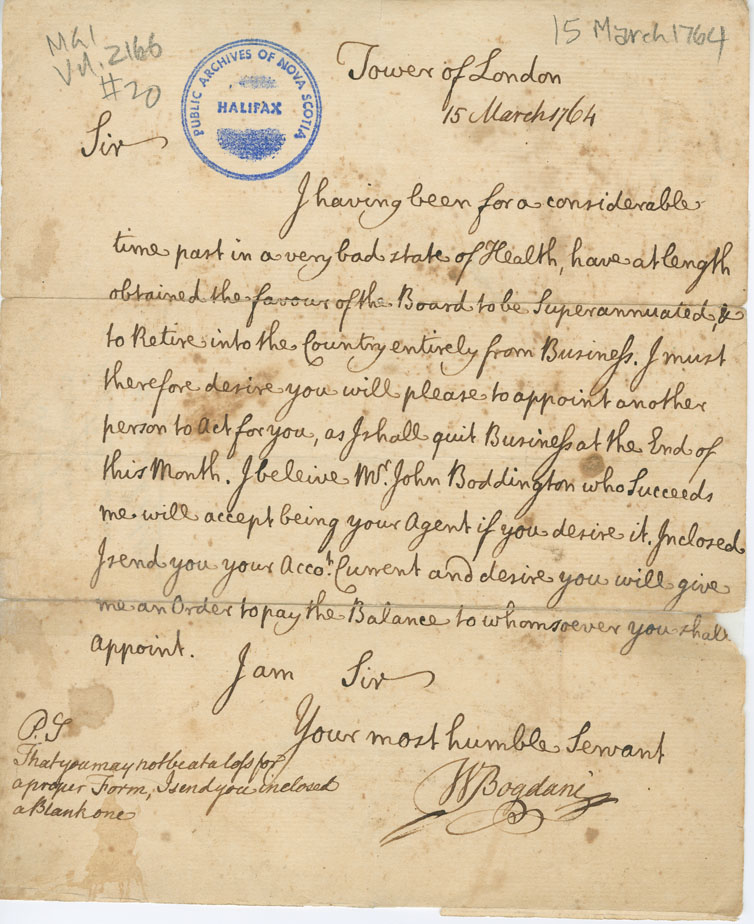 MG1
Vol. 2166
#20
15 March 1764
PUBLIC ARCHIVES OF NOVA SCOTIA
HALIFAX
Tower of London
15 March 1764
Sir
I having been for a considerable
time past in a very bad state of Health, have at length
obtained the favour of the Board to be Superannuated, &
to Retire into the Country entirely from Business. I must
therefore desire you will please to appoint another
person to Act for you, as I shall quit Business at the End of
this Month. I beleive Mr. John Boddington who Succeeds
me will accept being your Agent if you desire it. Inclosed
I send you your Accot. Current and desire you will give
me an Order to pay the Balance to whomsoever you shall
appoint.
I am Sir
Your most humble Servant
WBogdani
P.S
That you may not be at a loss for
a proper Form, I send you inclosed
a Blank one